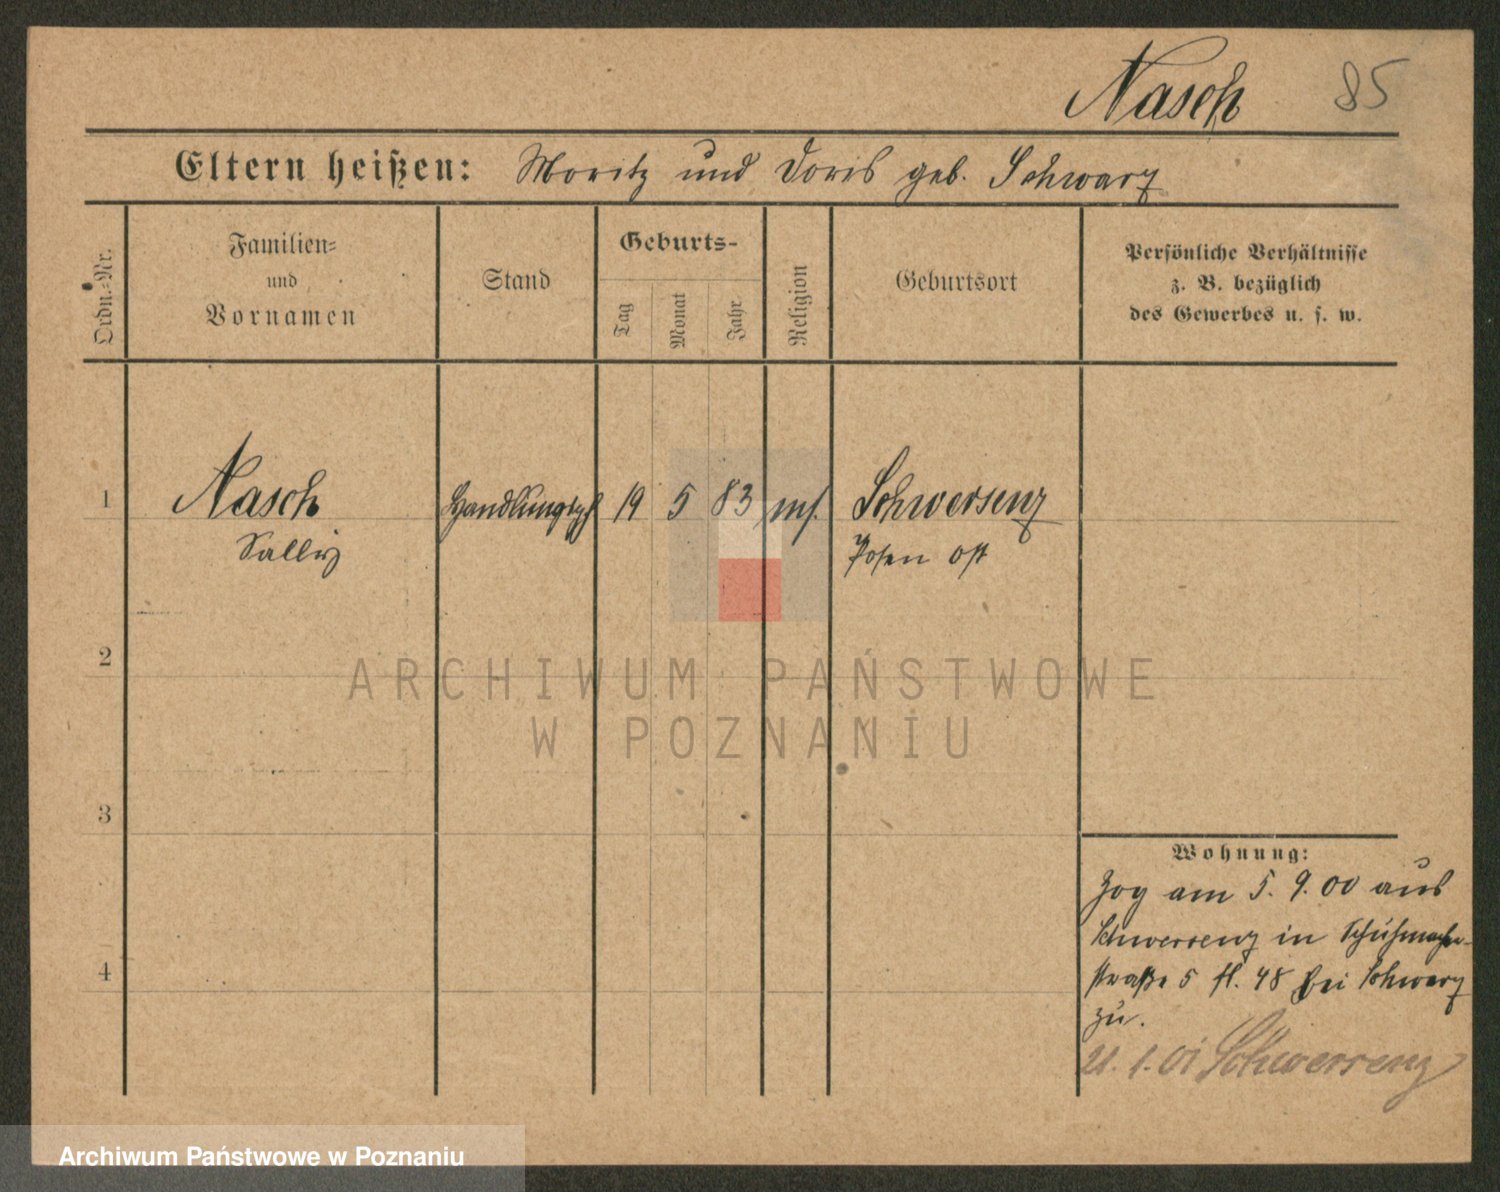 Nasch 85
Eltern heißen: Moritz und Doris geb. Schwarz
Ordn.-Nr.
Familien-
und
Vornamen
Stand
Geburts-
Tag
Monat
Jahr
Religion
Geburtsort
Persönliche Verhältnisse
z. B. bezüglich
des Gewerbes u. s. w.
1 Nasch 19 5 83 Schwersenz
Sally Posen Ost
2
ARCHIWUM PAŃSTWOWE
W POZNANIU
3
Wohnung:
Zog am 5. 9. 00 aus
Schwersenz in Schuhmacher-
straße 5 bei Schwarz
4
zu.
21. 1. 01 Schwersenz
Archiwum Państwowe w Poznaniu